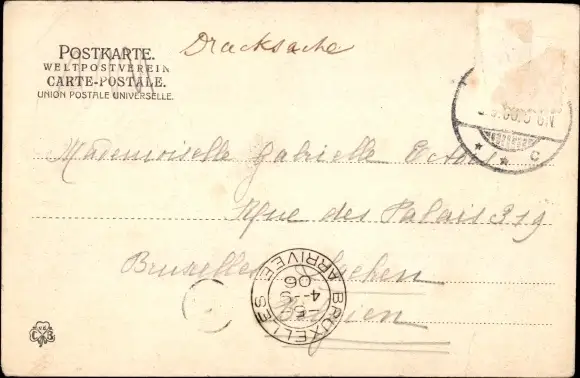 POSTKARTE.
WELTPOSTVEREIN
CARTE-POSTALE.
UNION POSTALE UNIVERSELLE.
Drucksache
Mademoiselle Gabrielle
Rue des Palais 319
Bruxelles
BRUXELLES
ARRIVEE
06